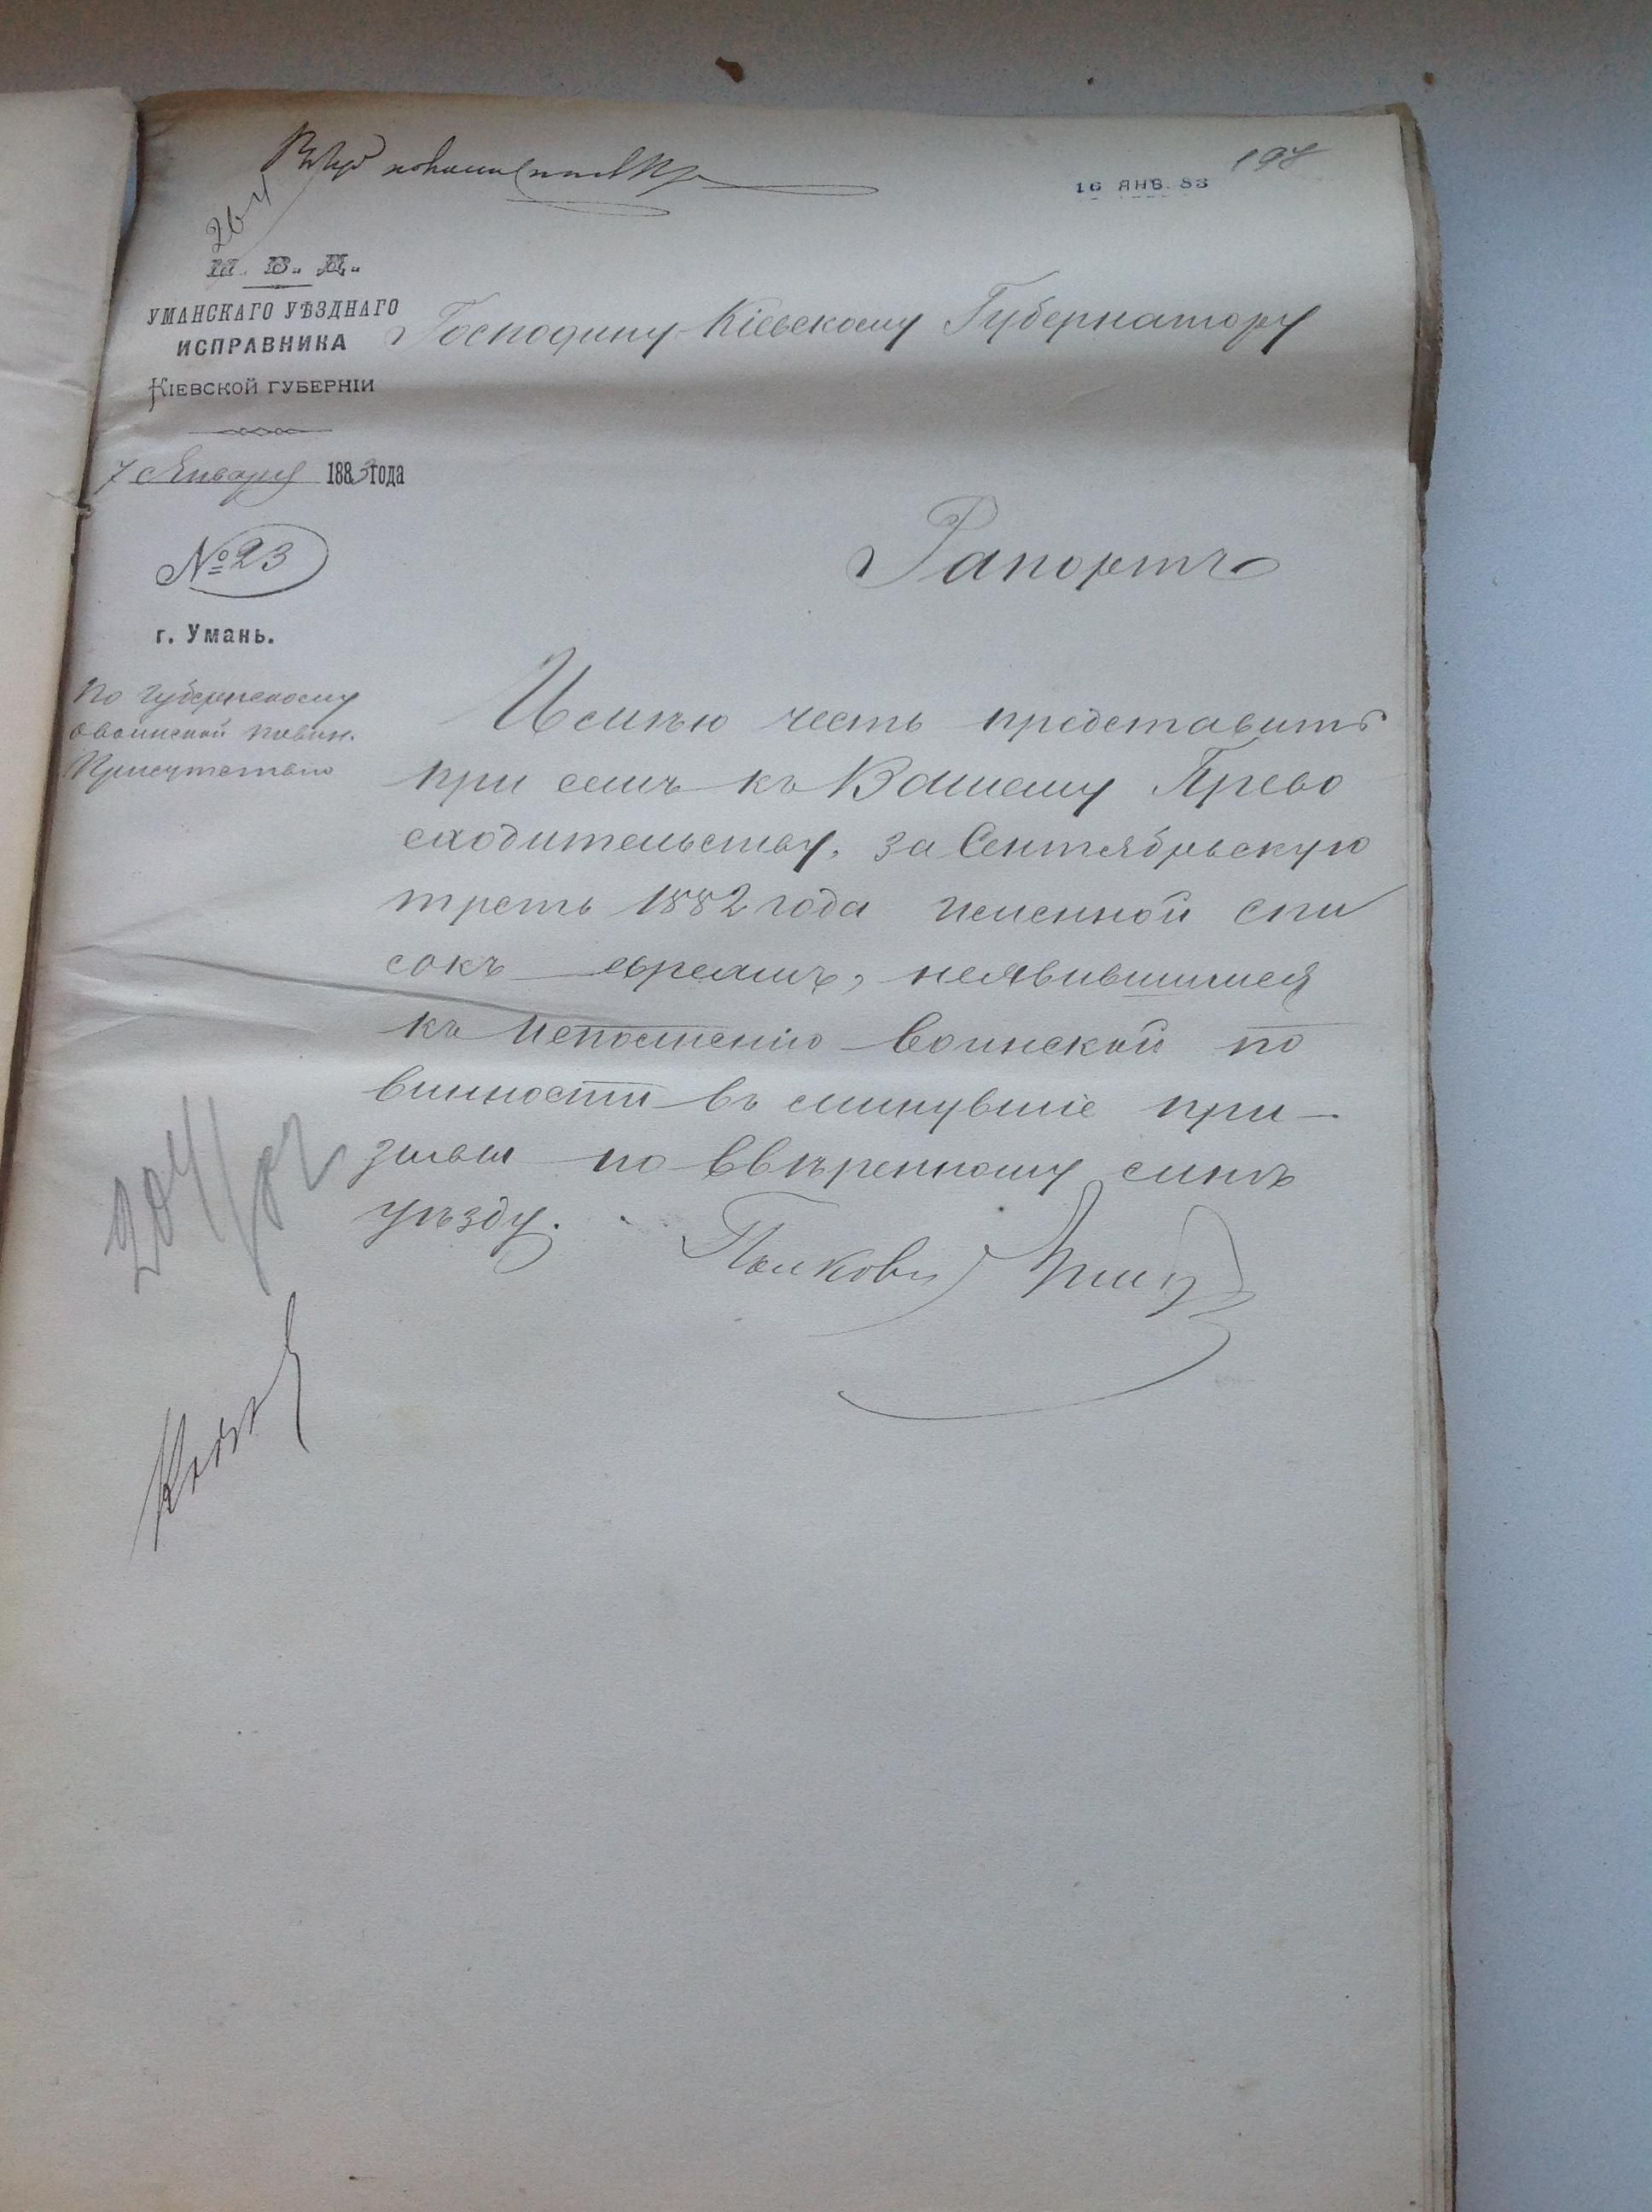 16 ЯНВ. 83
198
264
М. В. Д.
УМАНСКАГО УѢЗДНАГО
ИСПРАВНИКА
КІЕВСКОЙ ГУБЕРНІИ
7 Января 1883 года
№ 23
г. Умань.
По Губернскому
о воинской повин.
Присутствію
Господину Кіевскому Губернатору
Рапортъ
Имѣю честь представить
при семъ къ Вашему Прево
сходительству, за Сентябрьскую
треть 1882 года именной спи
сокъ евреямъ, неявившимися
къ исполненію воинской по
винности въ минувшіе при-
зывы по ввѣренному мнѣ
уѣзду.
Полковн